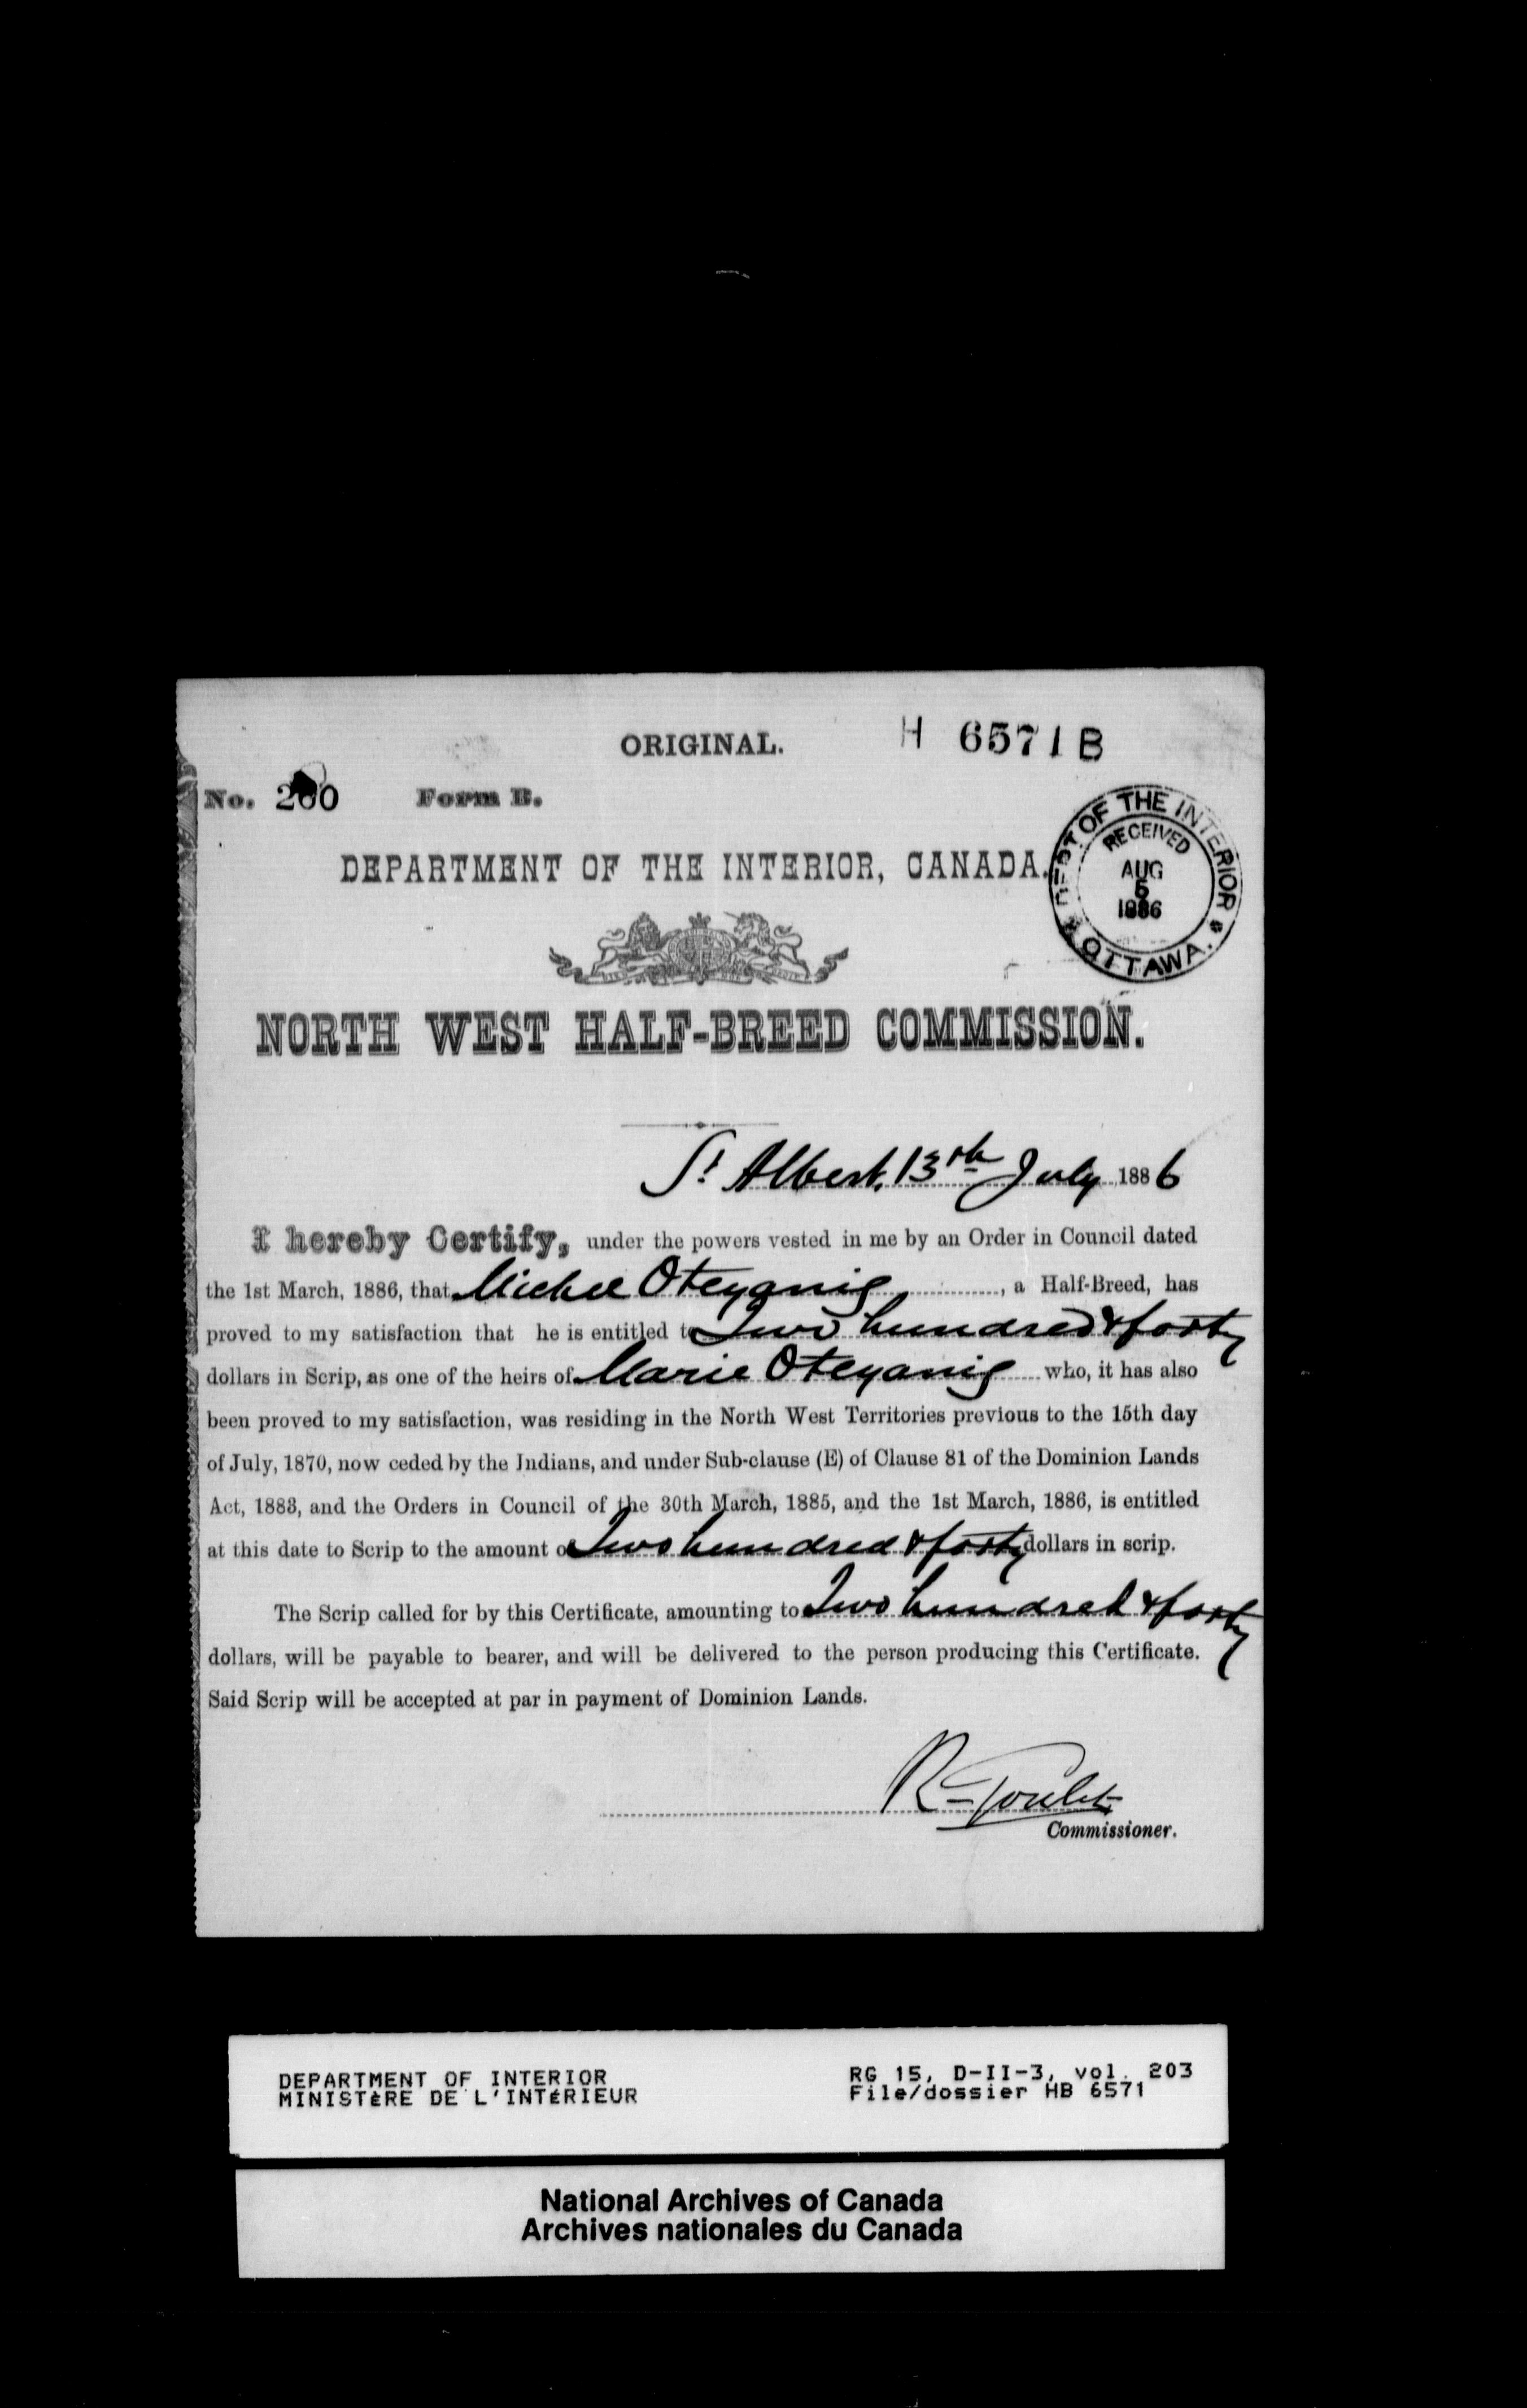 ORIGINAL.
H 6571 B
No. 200 Form B.
DEPT OF THE INTERIOR
RECEIVED
AUG
5
1886
OTTAWA.
DEPARTMENT OF THE INTERIOR, CANADA.
NORTH WEST HALF-BREED COMMISSION.
St Albert, 13th July 1886
I hereby Certify, under the powers vested in me by an Order in Council dated
the 1st March, 1886, that Michel Oteyanis, a Half-Breed, has
proved to my satisfaction that he is entitled to Two hundred & forty
dollars in Scrip, as one of the heirs of Marie Oteyanis who, it has also
been proved to my satisfaction, was residing in the North West Territories previous to the 15th day
of July, 1870, now ceded by the Indians, and under Sub-clause (E) of Clause 81 of the Dominion Lands
Act, 1883, and the Orders in Council of the 30th March, 1885, and the 1st March, 1886, is entitled
at this date to Scrip to the amount of Two hundred & forty dollars in scrip.
The Scrip called for by this Certificate, amounting to Two hundred & forty
dollars, will be payable to bearer, and will be delivered to the person producing this Certificate.
Said Scrip will be accepted at par in payment of Dominion Lands.
R Goulet
Commissioner.
DEPARTMENT OF INTERIOR
MINISTÈRE DE L'INTÉRIEUR
RG 15, D-II-3, vol. 203
File/dossier HB 6571
National Archives of Canada
Archives nationales du Canada